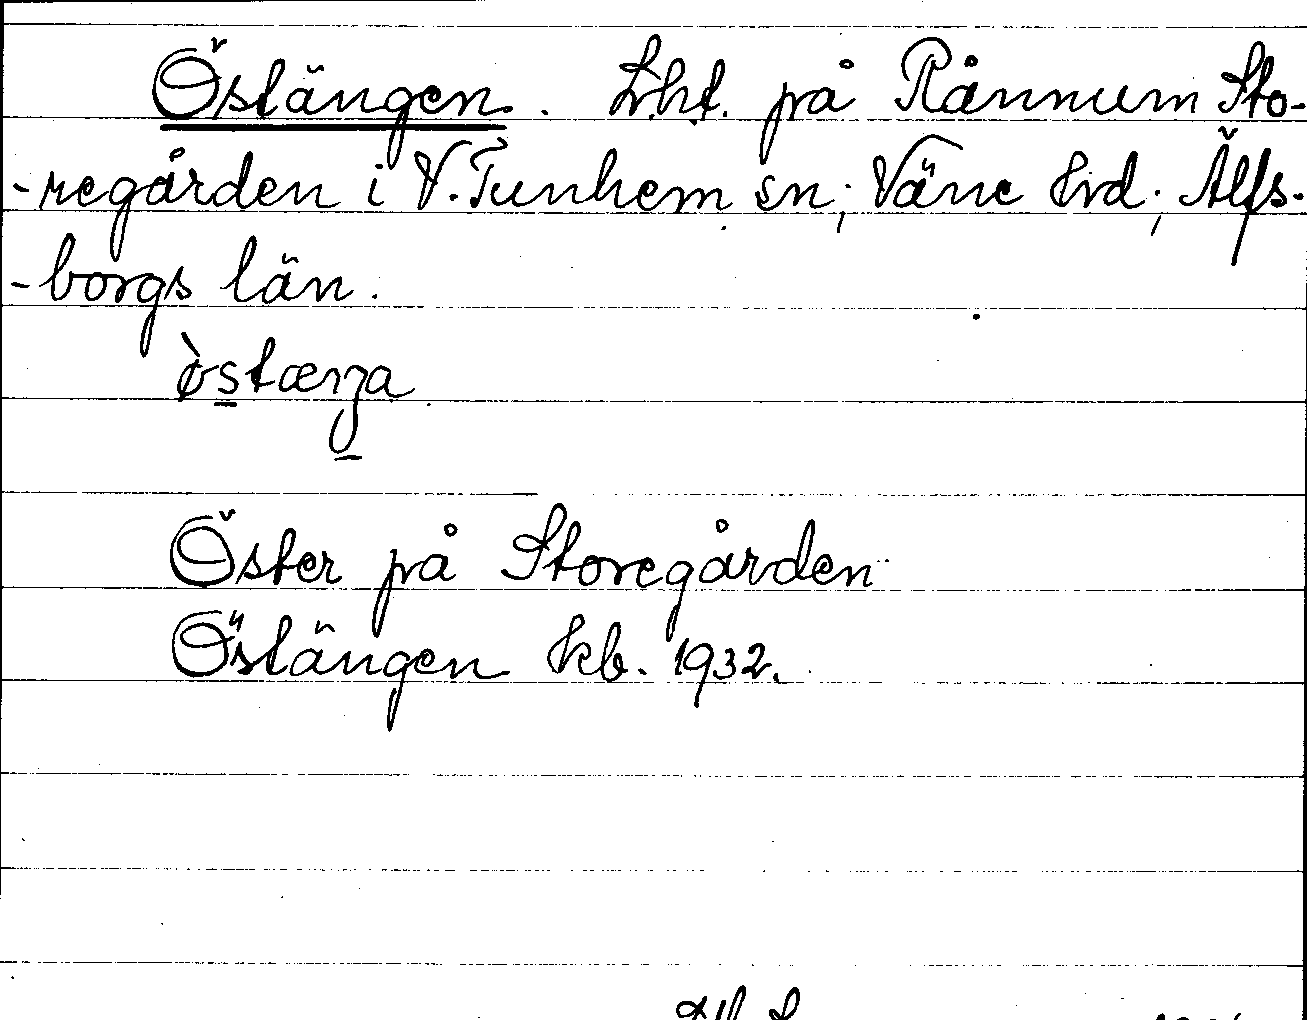 Östängen. Lht. på Rånnum Sto-
-regården i V. Tunhem sn; Väne hrd; Älfs-
-borgs län.
ö̀stæŋa
Öster på Storegården
Östängen kb. 1932.